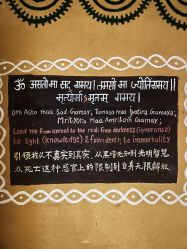 ॐ असतो मा सद् गमय। तमसो मा ज्योतिर्गमय।।
मृत्योर्माऽमृतम् गमय।
Om Asto maa Sad Gamay; Tamaso maa Jyotira Gamaya;
Mrityora Maa Amritam Gamay;
Lead me from unreal to the real from darkness (ignorance)
to light (knowledge) & from death to immortality
引领我从不真实到真实，从黑暗无知到光明智慧
从死亡这种感官上的限制到自身无限解放